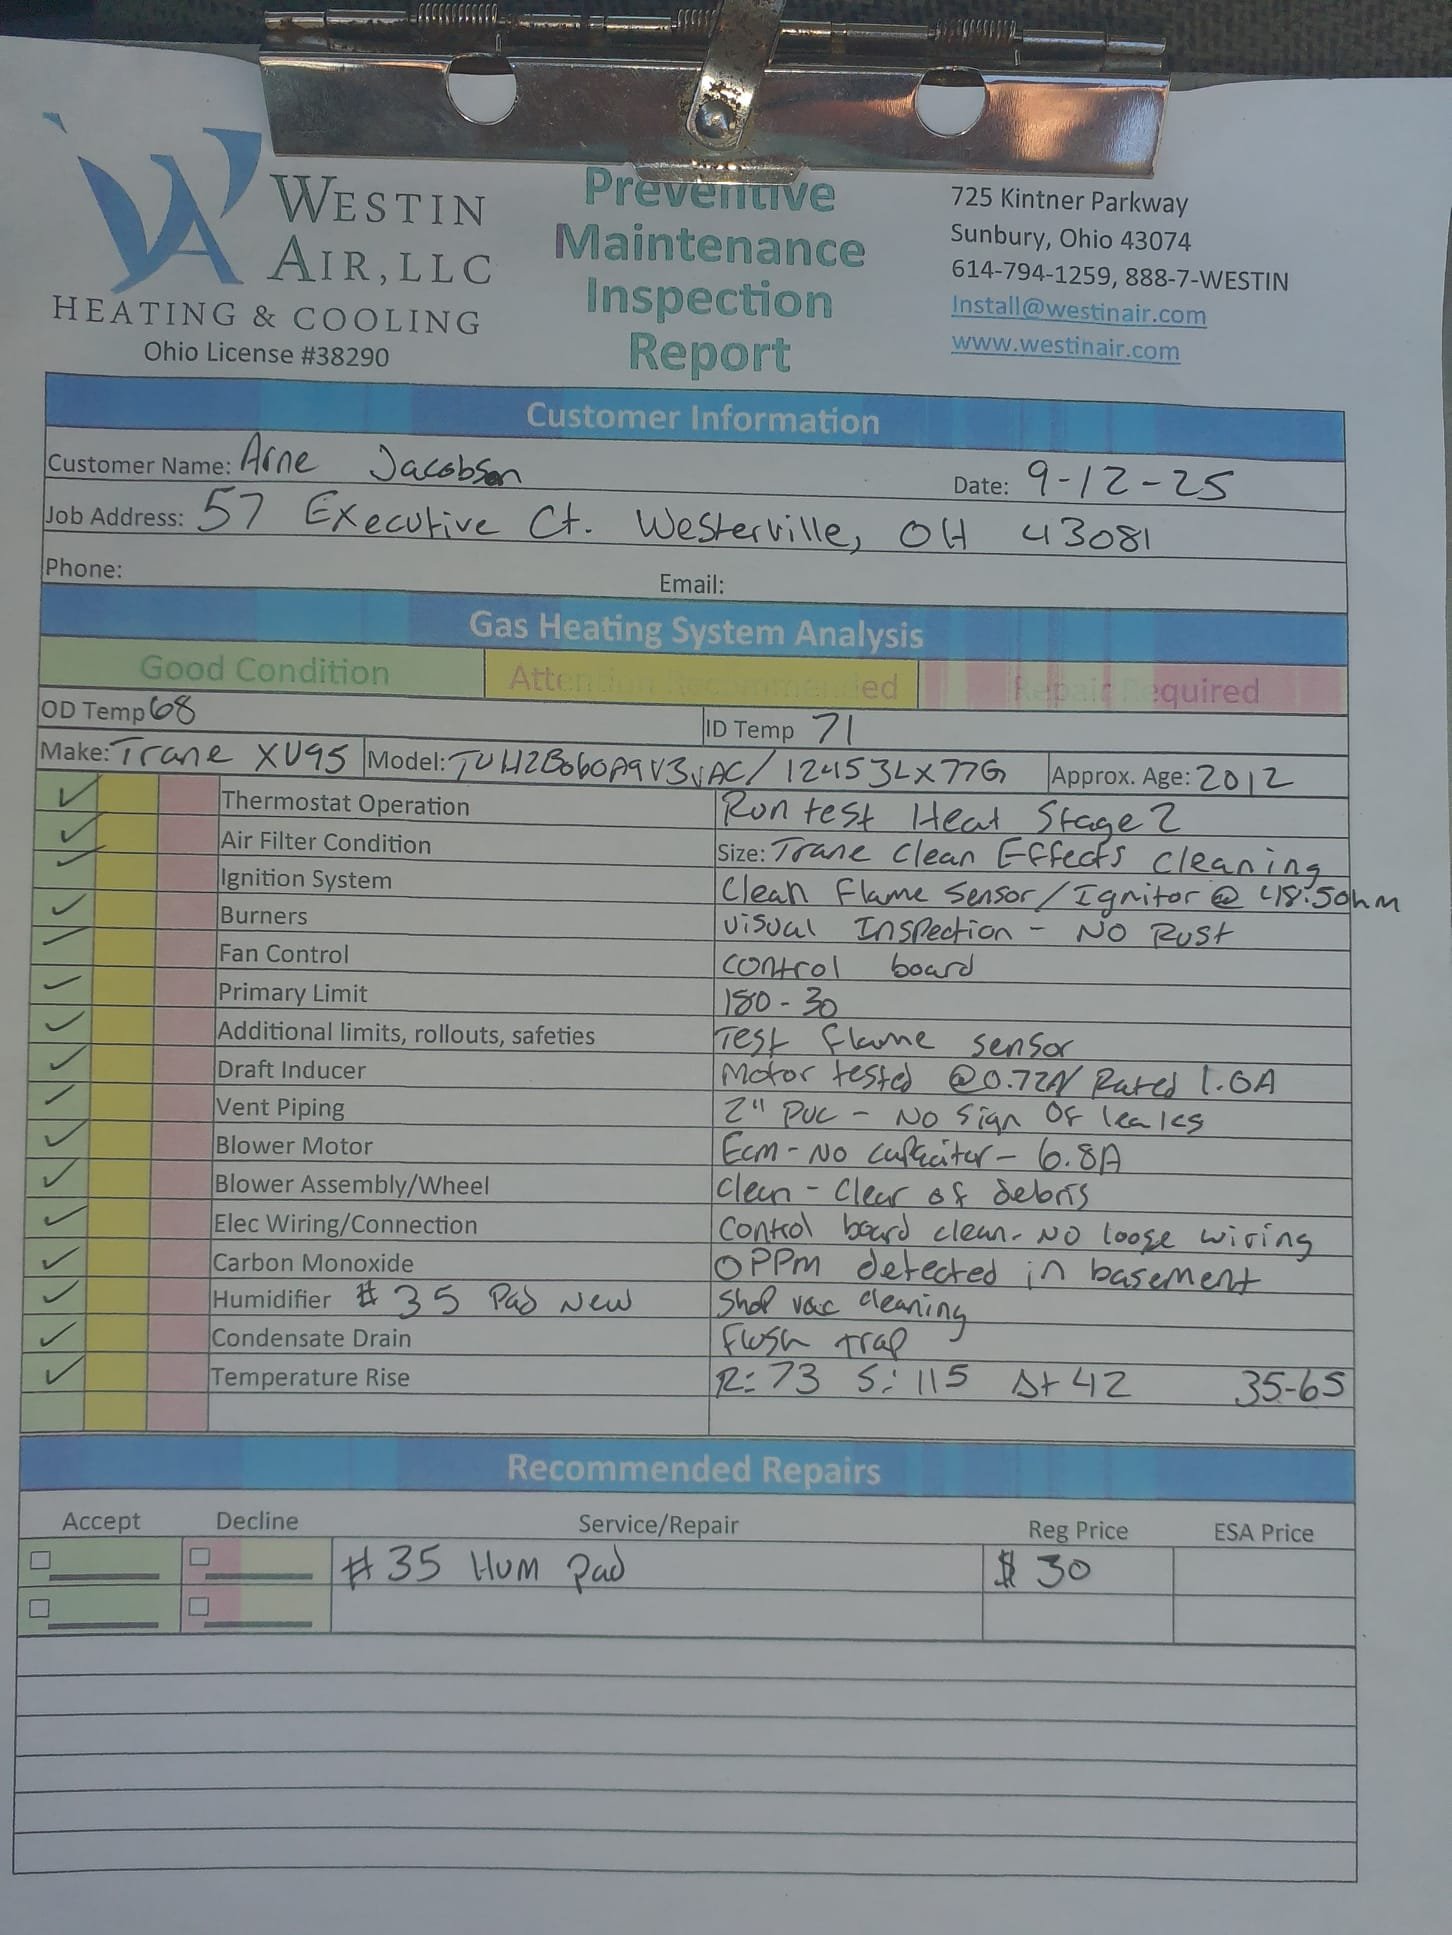 WESTIN
AIR, LLC
HEATING & COOLING
Ohio License #38290
Preventive
Maintenance
Inspection
Report
725 Kintner Parkway
Sunbury, Ohio 43074
614-794-1259, 888-7-WESTIN
Install@westinair.com
www.westinair.com
Customer Information
Customer Name: Arne Jacobson Date: 9-12-25
Job Address: 57 Executive Ct. Westerville, OH 43081
Phone: Email:
Gas Heating System Analysis
Good Condition Attention Recommended Repair Required
OD Temp 68 ID Temp 71
Make: Trane XV95 Model: TUH2B060A9V3VAC/12453LX77G Approx. Age: 2012
Thermostat Operation Run test Heat Stage 2
Air Filter Condition Size: Trane Clean Effects cleaning
Ignition System Clean Flame sensor/Ignitor @ 48.5ohm
Burners Visual Inspection - No Rust
Fan Control control board
Primary Limit 180-30
Additional limits, rollouts, safeties Test flame sensor
Draft Inducer Motor tested @0.72A/ Rated 1.0A
Vent Piping 2" PVC - No sign of leaks
Blower Motor Ecm - No capacitor - 6.8A
Blower Assembly/Wheel Clean - Clear of debris
Elec Wiring/Connection Control board clean - No loose wiring
Carbon Monoxide 0PPm detected in basement
Humidifier # 35 Pad New Shop vac cleaning
Condensate Drain Flush trap
Temperature Rise R: 73 S: 115 Δt 42 35-65
Recommended Repairs
Accept Decline Service/Repair Reg Price ESA Price
#35 Hum Pad $ 30